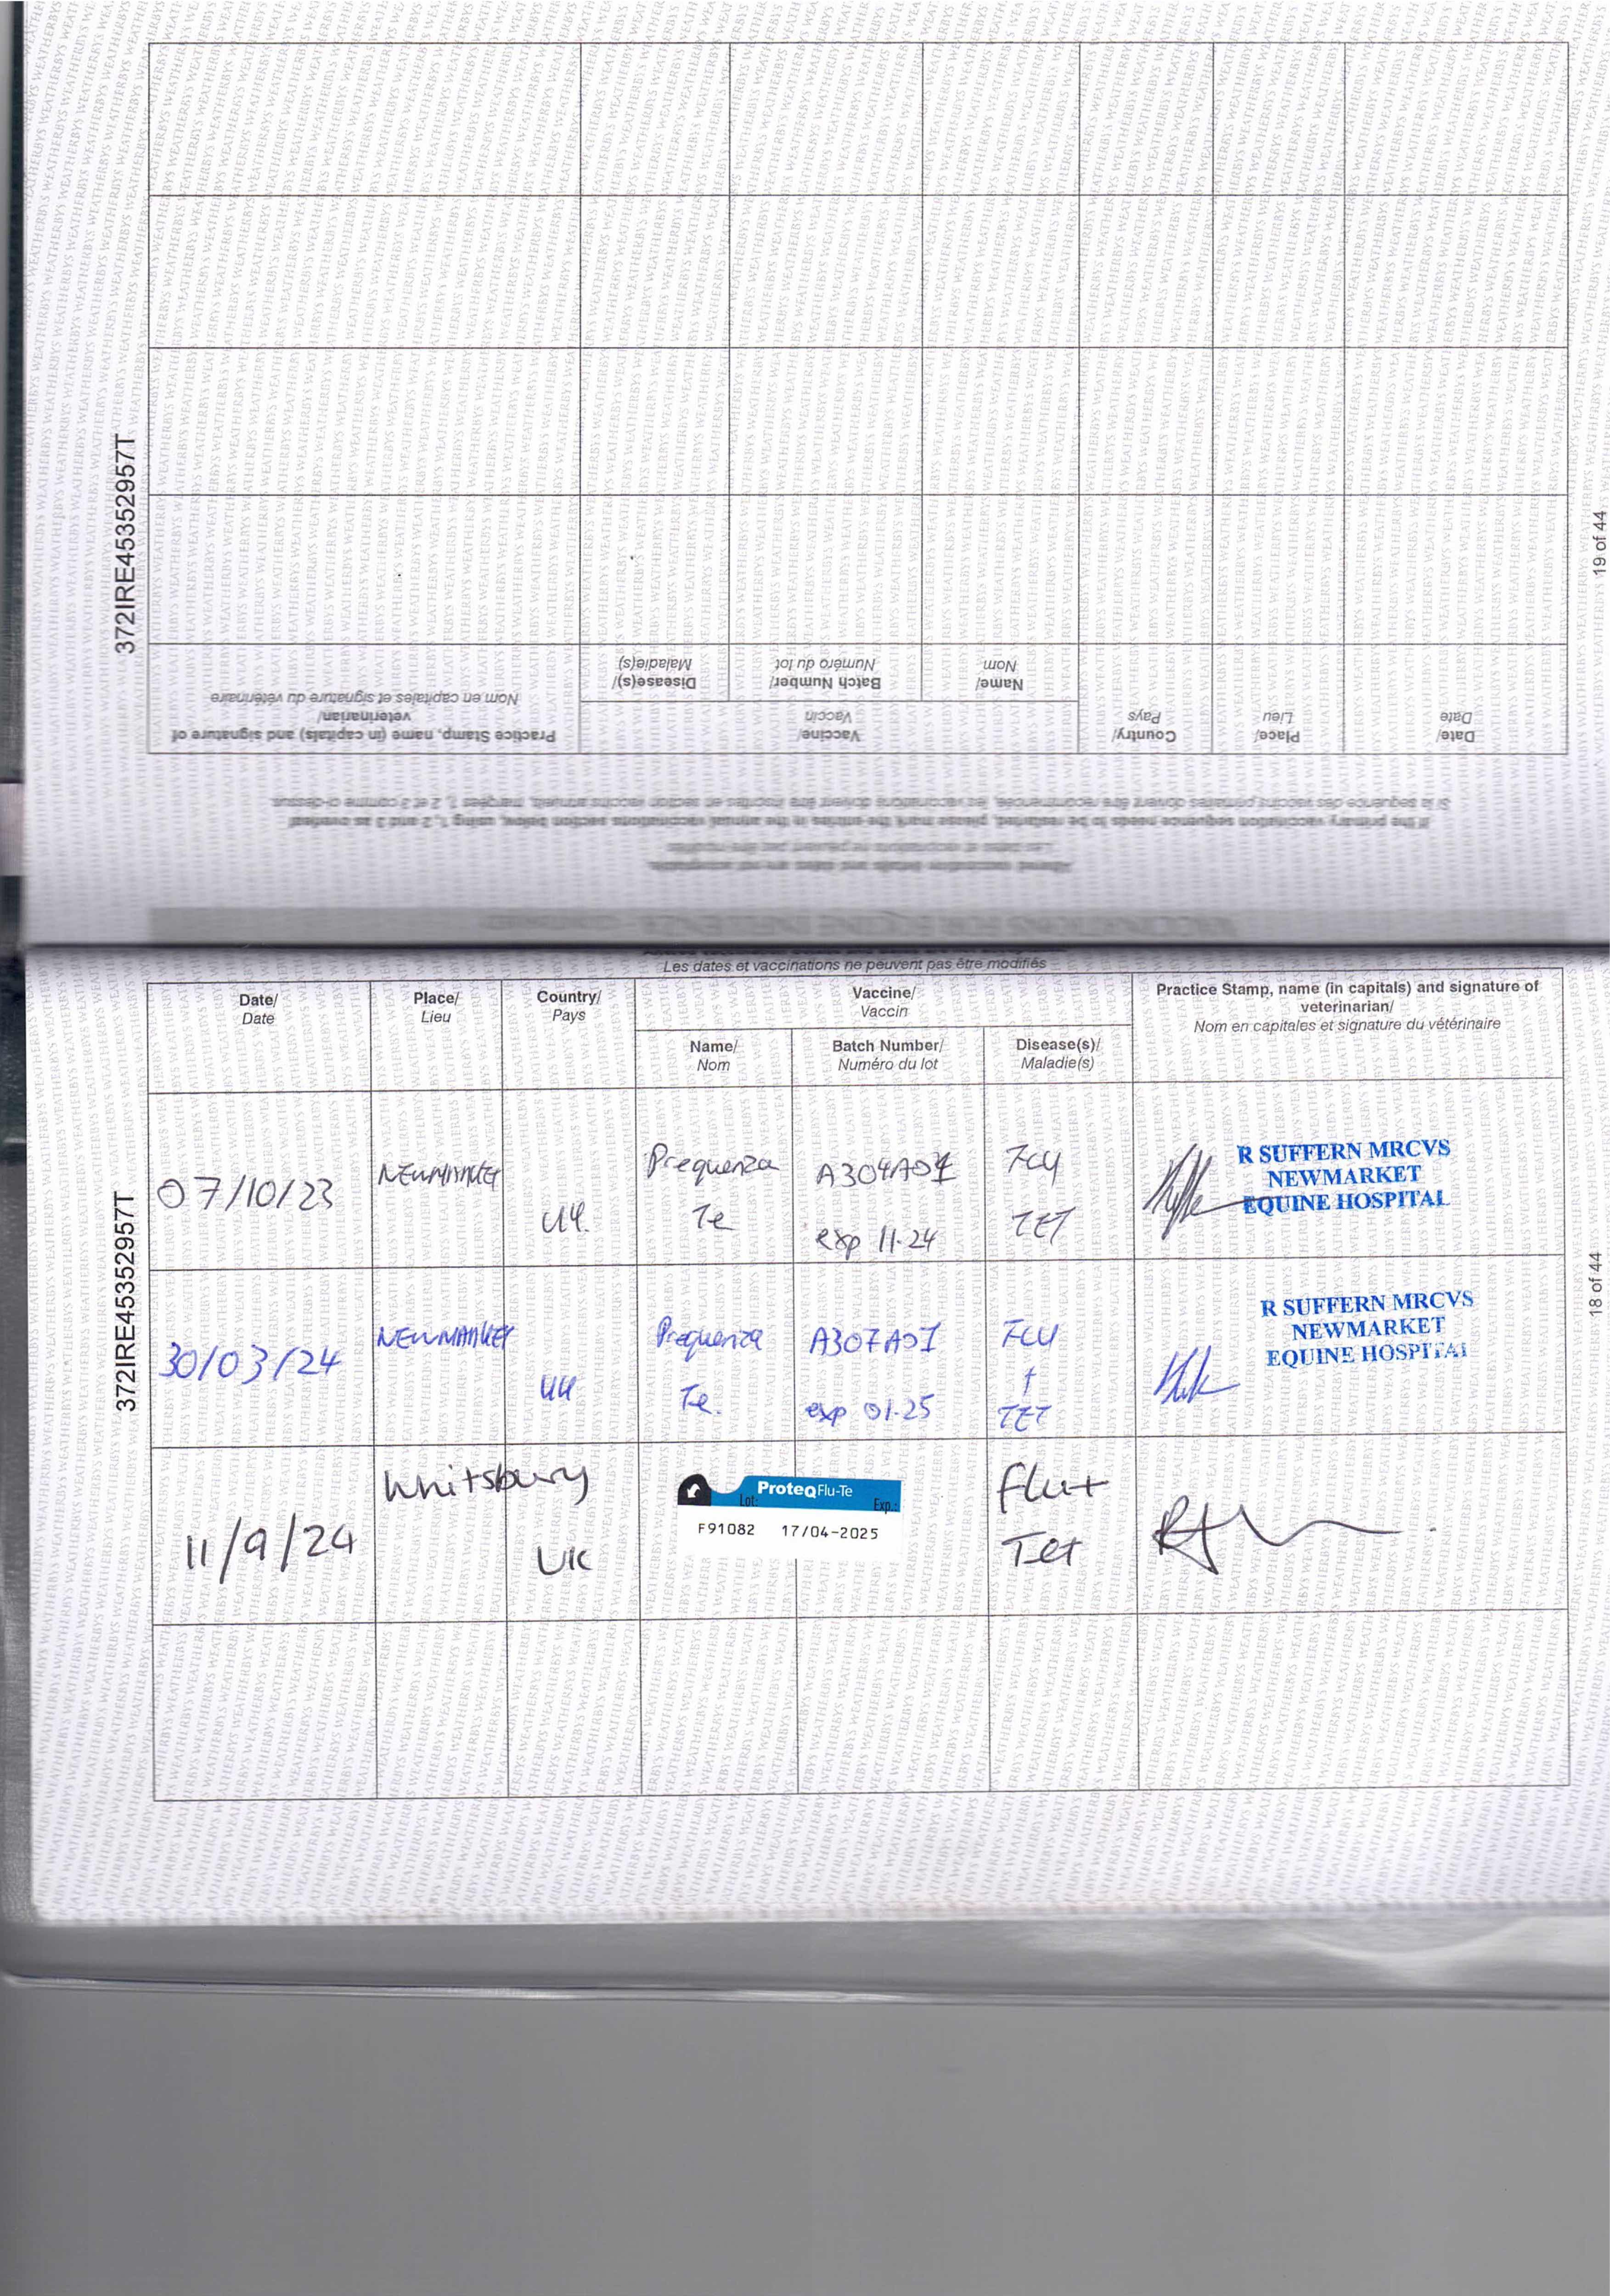 372IRE45352957T
19 of 44
Altered vaccination details and dates are not acceptable.
Les dates et vaccinations ne peuvent pas être modifiés
If the primary vaccination sequence needs to be restarted, please mark the entries in the annual vaccinations section below, using 1, 2 and 3 as overleaf
Si la séquence des vaccins primaires doivent être recommencées, les vaccinations doivent être inscrites en section vaccins annuels, margées 1, 2 et 3 comme ci-dessus.
Date/
Date
Place/
Lieu
Country/
Pays
Vaccine/
Vaccin
Name/
Nom
Batch Number/
Numéro du lot
Disease(s)/
Maladie(s)
Practice Stamp, name (in capitals) and signature of
veterinarian/
Nom en capitales et signature du vétérinaire
Les dates et vaccinations ne peuvent pas être modifiés
Date/
Date
Place/
Lieu
Country/
Pays
Vaccine/
Vaccin
Name/
Nom
Batch Number/
Numéro du lot
Disease(s)/
Maladie(s)
Practice Stamp, name (in capitals) and signature of
veterinarian/
Nom en capitales et signature du vétérinaire
07/10/23
NEWMARKET
UK
Prequenza
Te
A304A01
exp 11-24
FLU
TET
R SUFFERN MRCVS
NEWMARKET
EQUINE HOSPITAL
30/03/24
NEWMARKET
UK
Prequenza
Te.
A307A01
exp 01-25
FLU
+
TET
R SUFFERN MRCVS
NEWMARKET
EQUINE HOSPITAL
11/9/24
Whitsbury
UK
ProteqFlu-Te
Lot: Exp.:
F91082 17/04-2025
flu+
Tet
372IRE45352957T
18 of 44